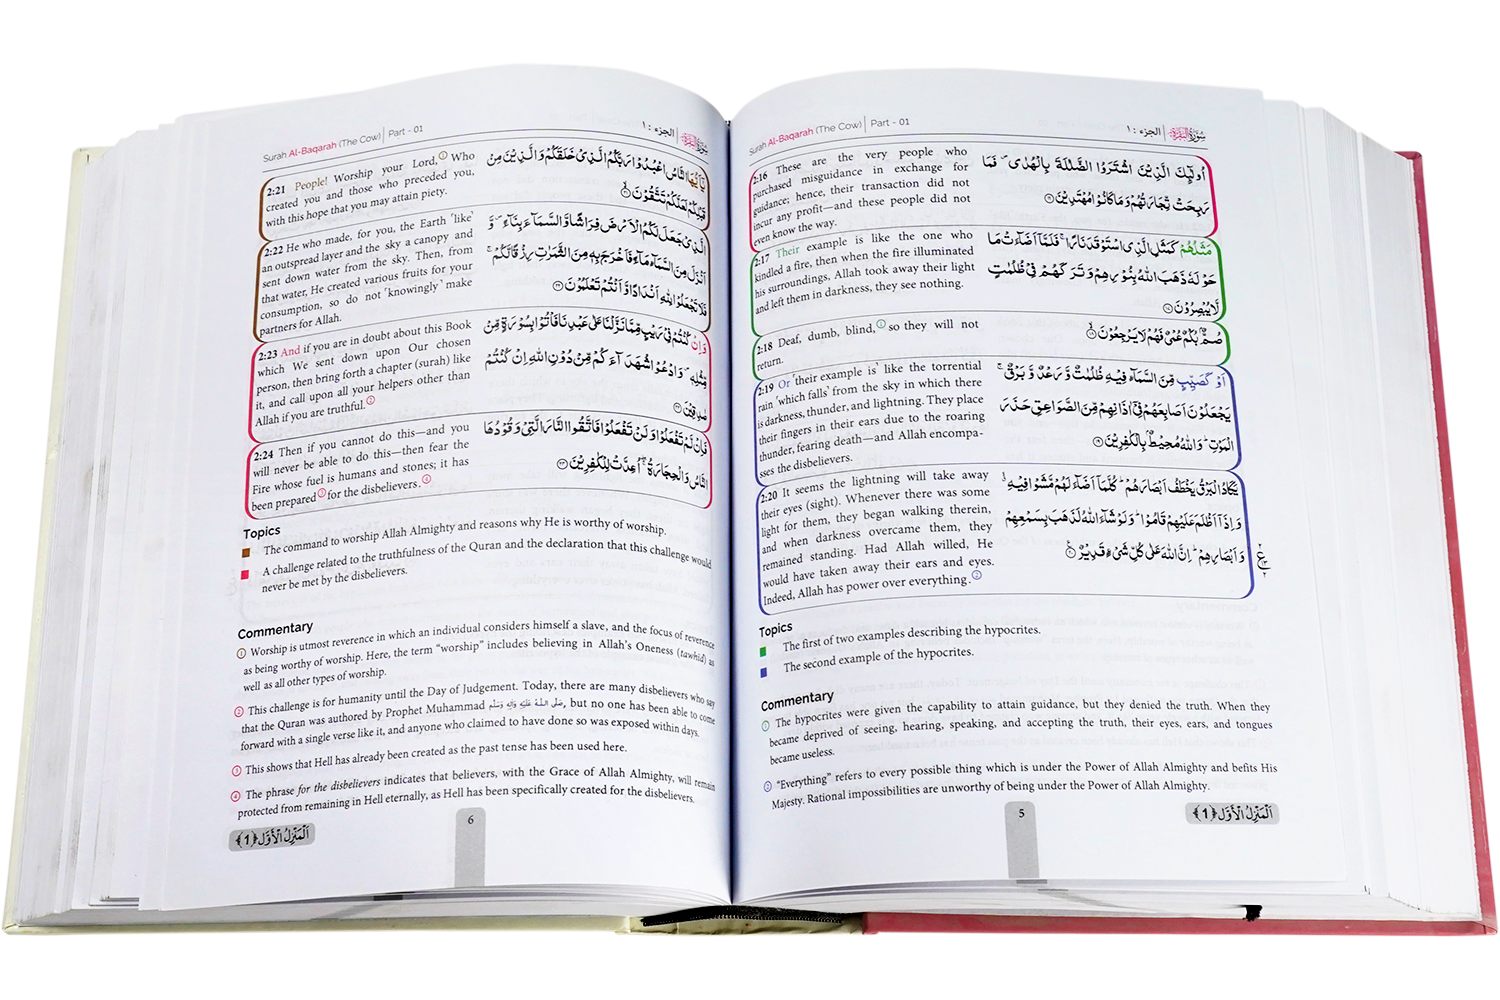 Surah Al-Baqarah (The Cow) | Part - 01
الجزء : ١ | سُوْرَةُ الْبَقَرَة
2:16 These are the very people who
purchased misguidance in exchange for
guidance; hence, their transaction did not
incur any profit—and these people did not
even know the way.
اُولٰٓىِٕكَ الَّذِيْنَ اشْتَرَوُا الضَّلٰلَةَ بِالْهُدٰى ۪ فَمَا
رَبِحَتْ تِّجَارَتُهُمْ وَمَا كَانُوْا مُهْتَدِيْنَ ﴿۱۶﴾
2:17 Their example is like the one who
kindled a fire, then when the fire illuminated
his surroundings, Allah took away their light
and left them in darkness, they see nothing.
مَثَلُهُمْ كَمَثَلِ الَّذِى اسْتَوْقَدَ نَارًا ۚ فَلَمَّاۤ اَضَآءَتْ مَا
حَوْلَهٗ ذَهَبَ اللّٰهُ بِنُوْرِهِمْ وَتَرَكَهُمْ فِيْ ظُلُمٰتٍ
لَّا يُبْصِرُوْنَ ﴿۱۷﴾
2:18 Deaf, dumb, blind,① so they will not
return.
صُمٌّۢ بُكْمٌ عُمْيٌ فَهُمْ لَا يَرْجِعُوْنَ ﴿۱۸﴾
2:19 Or ‘their example is’ like the torrential
rain ‘which falls’ from the sky in which there
is darkness, thunder, and lightning. They place
their fingers in their ears due to the roaring
thunder, fearing death—and Allah encompa-
sses the disbelievers.
اَوْ كَصَيِّبٍ مِّنَ السَّمَآءِ فِيْهِ ظُلُمٰتٌ وَّرَعْدٌ وَّبَرْقٌ ۚ
يَجْعَلُوْنَ اَصَابِعَهُمْ فِيْۤ اٰذَانِهِمْ مِّنَ الصَّوَاعِقِ حَذَرَ
الْمَوْتِ ؕ وَاللّٰهُ مُحِيْطٌۢ بِالْكٰفِرِيْنَ ﴿۱۹﴾
2:20 It seems the lightning will take away
their eyes (sight). Whenever there was some
light for them, they began walking therein,
and when darkness overcame them, they
remained standing. Had Allah willed, He
would have taken away their ears and eyes.
Indeed, Allah has power over everything.②
يَكَادُ الْبَرْقُ يَخْطَفُ اَبْصَارَهُمْ ؕ كُلَّمَاۤ اَضَآءَ لَهُمْ مَّشَوْا فِيْهِ ۙ
وَاِذَاۤ اَظْلَمَ عَلَيْهِمْ قَامُوْا ؕ وَلَوْ شَآءَ اللّٰهُ لَذَهَبَ بِسَمْعِهِمْ
وَاَبْصَارِهِمْ ؕ اِنَّ اللّٰهَ عَلٰى كُلِّ شَيْءٍ قَدِيْرٌ ﴿۲۰﴾
Topics
The first of two examples describing the hypocrites.
The second example of the hypocrites.
Commentary
① The hypocrites were given the capability to attain guidance, but they denied the truth. When they
became deprived of seeing, hearing, speaking, and accepting the truth, their eyes, ears, and tongues
became useless.
② “Everything” refers to every possible thing which is under the Power of Allah Almighty and befits His
Majesty. Rational impossibilities are unworthy of being under the Power of Allah Almighty.
5
اَلْمَنْزِلُ الْاَوَّل ﴿1﴾
Surah Al-Baqarah (The Cow) | Part - 01
الجزء : ١ | سُوْرَةُ الْبَقَرَة
2:21 People! Worship your Lord,① Who
created you and those who preceded you,
with this hope that you may attain piety.
يٰۤاَيُّهَا النَّاسُ اعْبُدُوْا رَبَّكُمُ الَّذِيْ خَلَقَكُمْ وَالَّذِيْنَ مِنْ
قَبْلِكُمْ لَعَلَّكُمْ تَتَّقُوْنَ ﴿۲۱﴾
2:22 He who made, for you, the Earth ‘like’
an outspread layer and the sky a canopy and
sent down water from the sky. Then, from
that water, He created various fruits for your
consumption, so do not ‘knowingly’ make
partners for Allah.
الَّذِيْ جَعَلَ لَكُمُ الْاَرْضَ فِرَاشًا وَّالسَّمَآءَ بِنَآءً ۪ وَّ
اَنْزَلَ مِنَ السَّمَآءِ مَآءً فَاَخْرَجَ بِهٖ مِنَ الثَّمَرٰتِ رِزْقًا لَّكُمْ ۚ
فَلَا تَجْعَلُوْا لِلّٰهِ اَنْدَادًا وَّاَنْتُمْ تَعْلَمُوْنَ ﴿۲۲﴾
2:23 And if you are in doubt about this Book
which We sent down upon Our chosen
person, then bring forth a chapter (surah) like
it, and call upon all your helpers other than
Allah if you are truthful.②
وَاِنْ كُنْتُمْ فِيْ رَيْبٍ مِّمَّا نَزَّلْنَا عَلٰى عَبْدِنَا فَاْتُوْا بِسُوْرَةٍ مِّنْ
مِّثْلِهٖ ۪ وَادْعُوْا شُهَدَآءَكُمْ مِّنْ دُوْنِ اللّٰهِ اِنْ كُنْتُمْ
صٰدِقِيْنَ ﴿۲۳﴾
2:24 Then if you cannot do this—and you
will never be able to do this—then fear the
Fire whose fuel is humans and stones; it has
been prepared③ for the disbelievers.④
فَاِنْ لَّمْ تَفْعَلُوْا وَلَنْ تَفْعَلُوْا فَاتَّقُوا النَّارَ الَّتِيْ وَقُوْدُهَا
النَّاسُ وَالْحِجَارَةُ ۖۚ اُعِدَّتْ لِلْكٰفِرِيْنَ ﴿۲۴﴾
Topics
The command to worship Allah Almighty and reasons why He is worthy of worship.
A challenge related to the truthfulness of the Quran and the declaration that this challenge would
never be met by the disbelievers.
Commentary
① Worship is utmost reverence in which an individual considers himself a slave, and the focus of reverence
as being worthy of worship. Here, the term “worship” includes believing in Allah’s Oneness (tawhid) as
well as all other types of worship.
② This challenge is for humanity until the Day of Judgement. Today, there are many disbelievers who say
that the Quran was authored by Prophet Muhammad صَلَّى اللّٰهُ عَلَيْهِ وَاٰلِهٖ وَسَلَّم, but no one has been able to come
forward with a single verse like it, and anyone who claimed to have done so was exposed within days.
③ This shows that Hell has already been created as the past tense has been used here.
④ The phrase for the disbelievers indicates that believers, with the Grace of Allah Almighty, will remain
protected from remaining in Hell eternally, as Hell has been specifically created for the disbelievers.
6
اَلْمَنْزِلُ الْاَوَّل ﴿1﴾